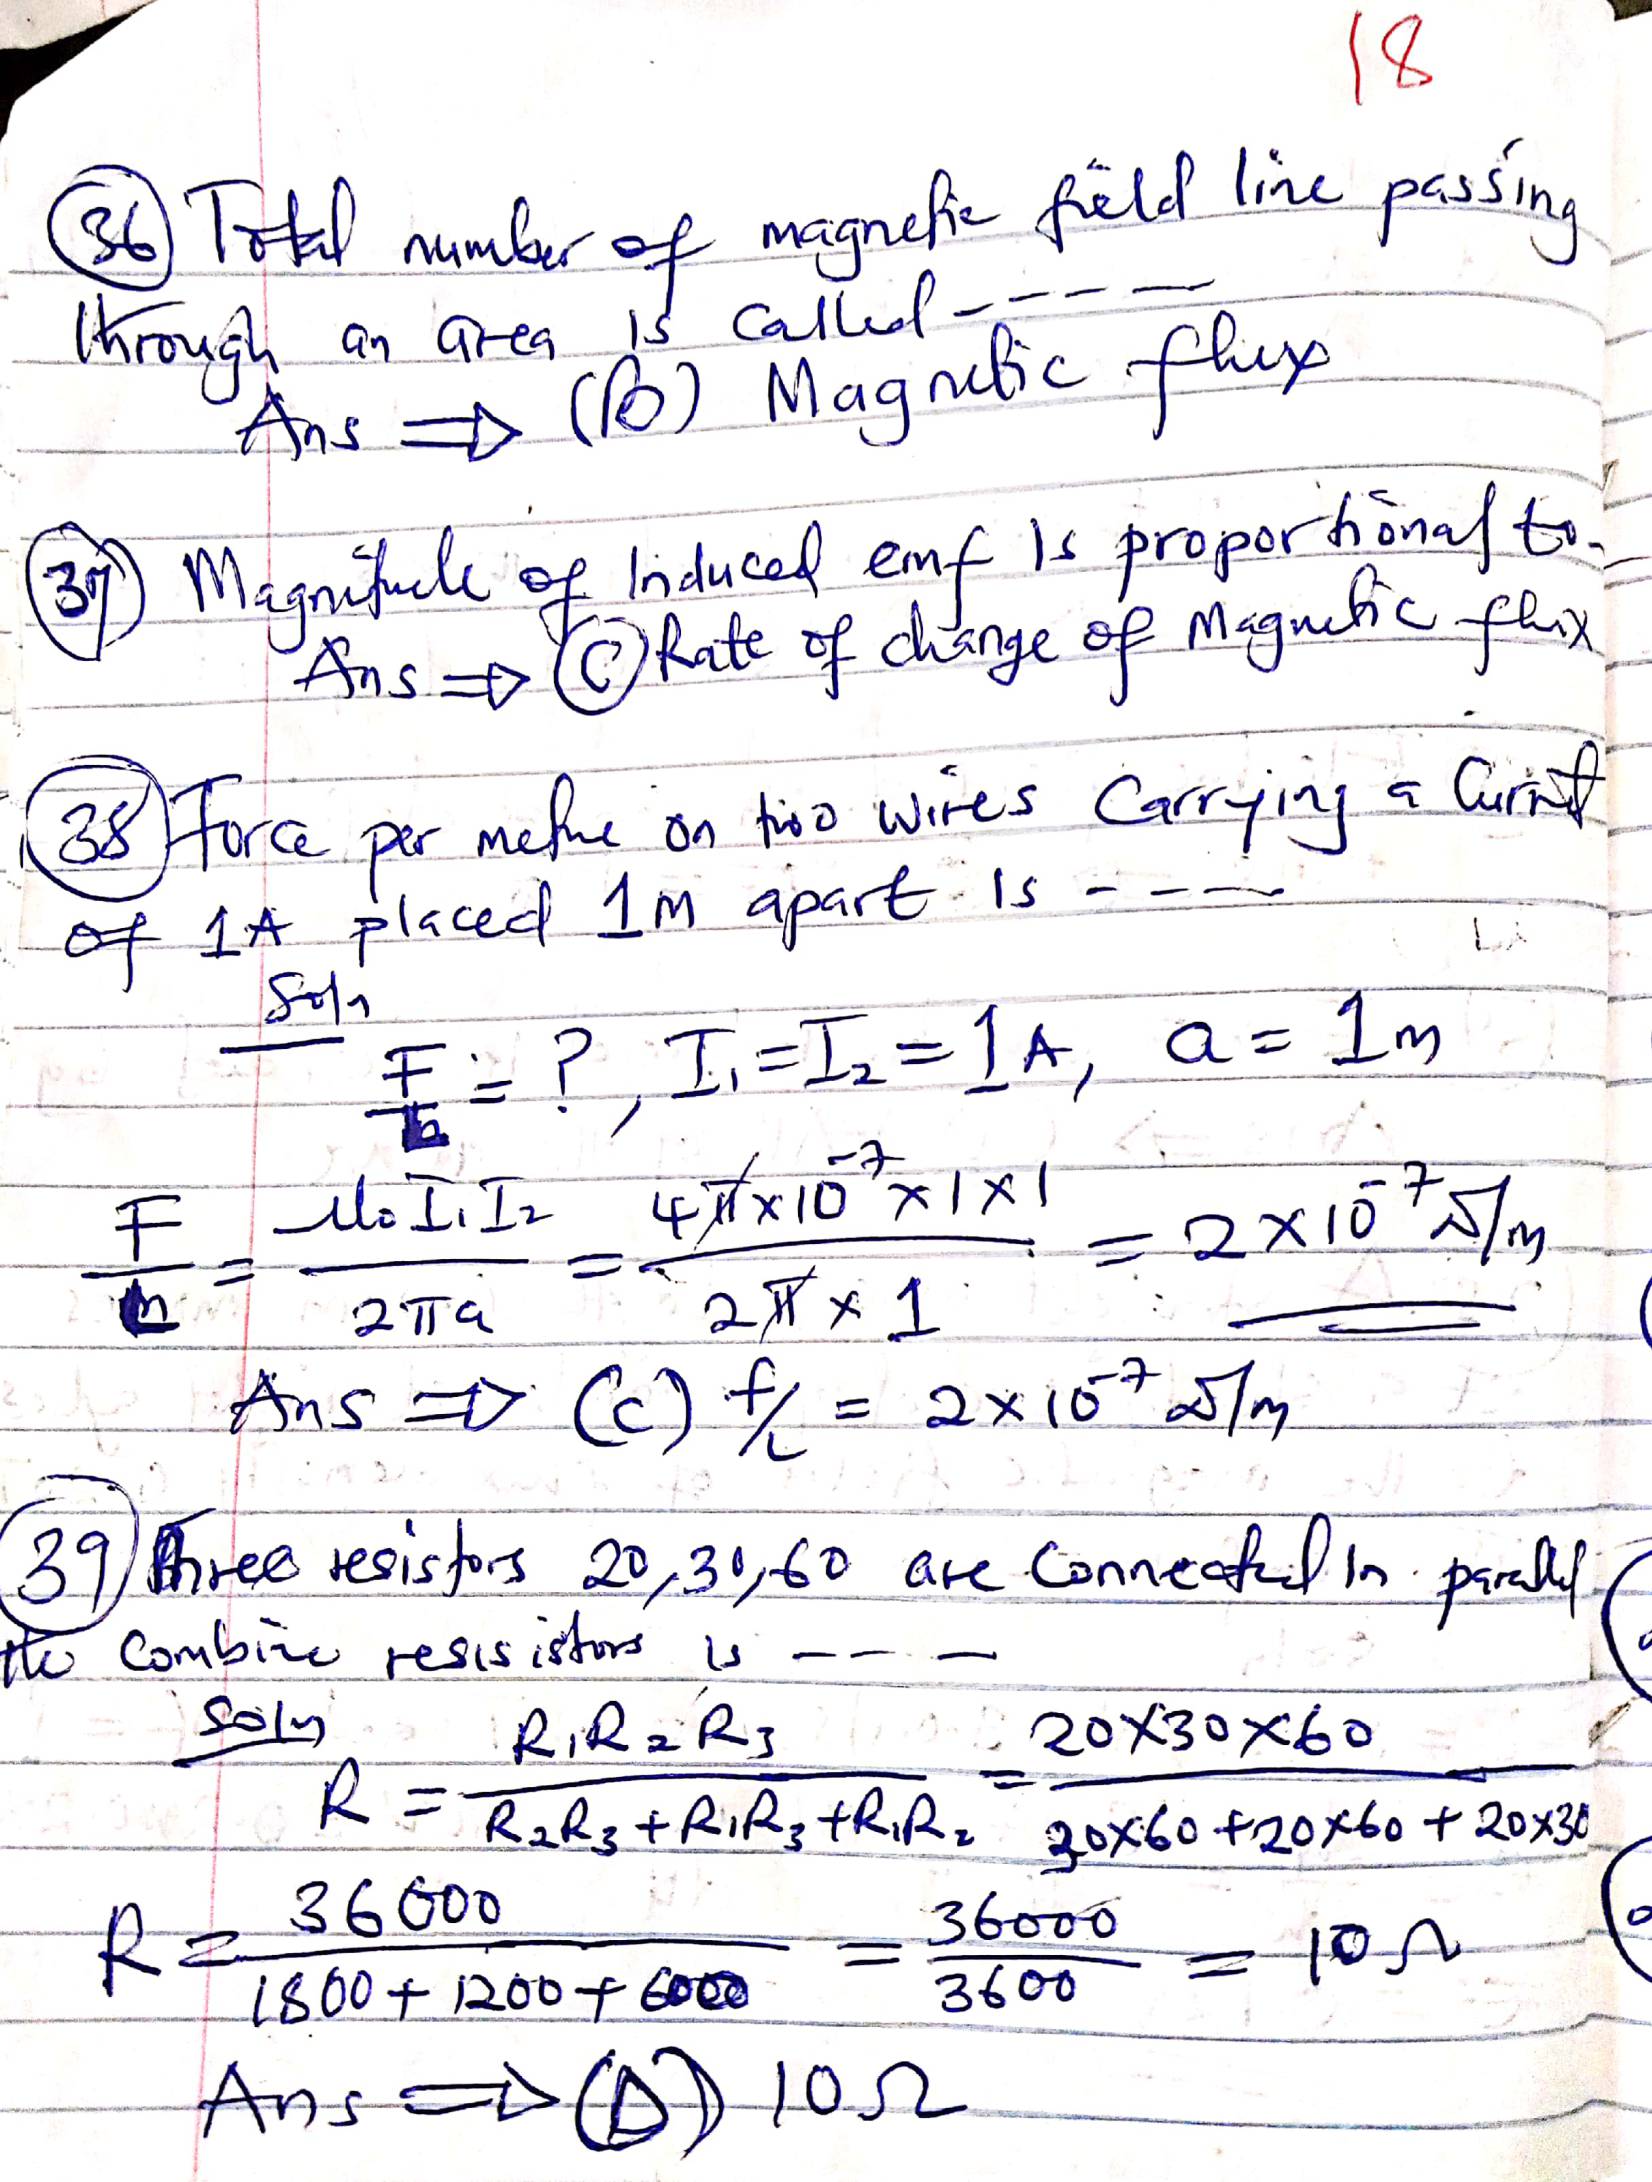 18
(36) Total number of magnetic field line passing
through an area is called -----
Ans ⇒ (B) Magnetic flux
(37) Magnitude of Induced emf Is proportional to-
Ans ⇒ (C) Rate of change of Magnetic flux
(38) Force per metre on two wires Carrying a Current
of 1A placed 1m apart Is ----
Soln
F/L = ?, I₁ = I₂ = 1A, a = 1m
F/L = μ₀I₁I₂ / 2πa = 4π×10⁻⁷×1×1 / 2π×1 = 2×10⁻⁷N/m
Ans ⇒ (C) f/L = 2×10⁻⁷N/m
(39) Three resistors 20,30,60 are Connected In parallel
the Combine resisistors is ---
Soln
R = R₁R₂R₃ / R₂R₃+R₁R₃+R₁R₂ = 20×30×60 / 30×60+20×60+20×30
R = 36000 / 1800+1200+600 = 36000 / 3600 = 10Ω
Ans ⇒ (D) 10Ω